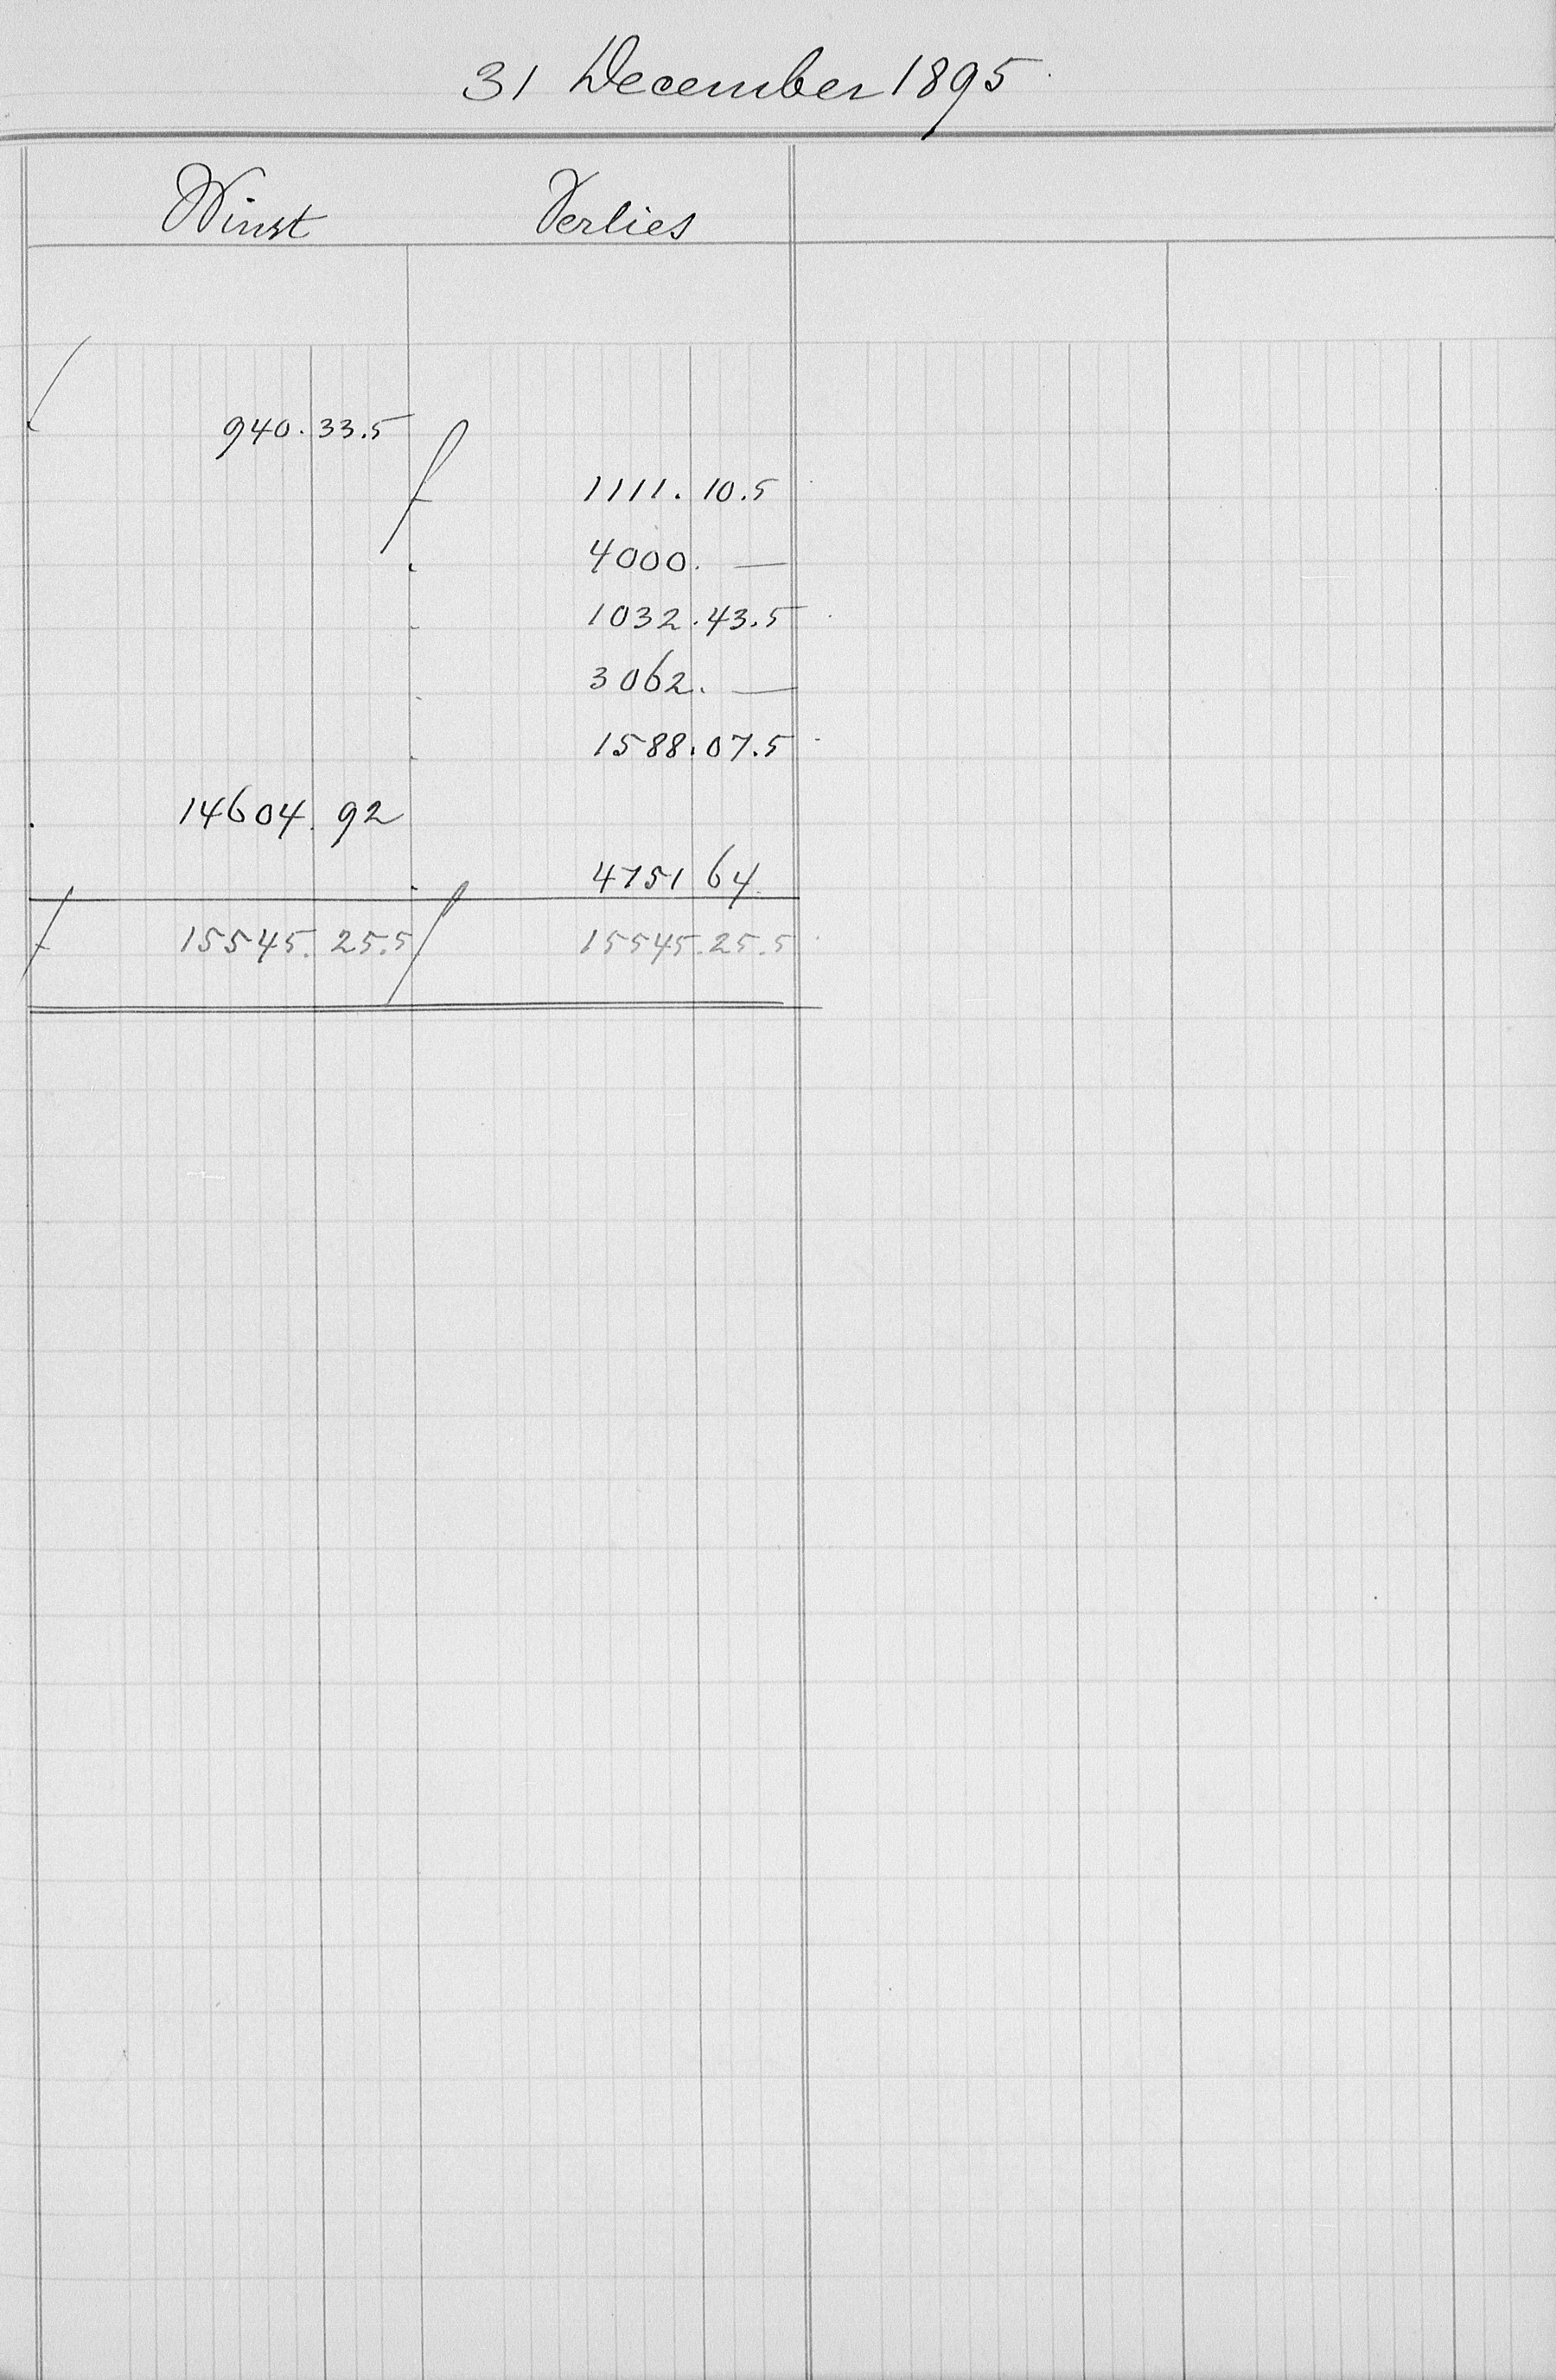 31 December 1895
Winst Verlies
940.33.5
f 1111.10.5
4000. —
1032.43.5
3062. —
1588.07.5
14604.92
4751 64
f 15545.25.5 f 15545.25.5